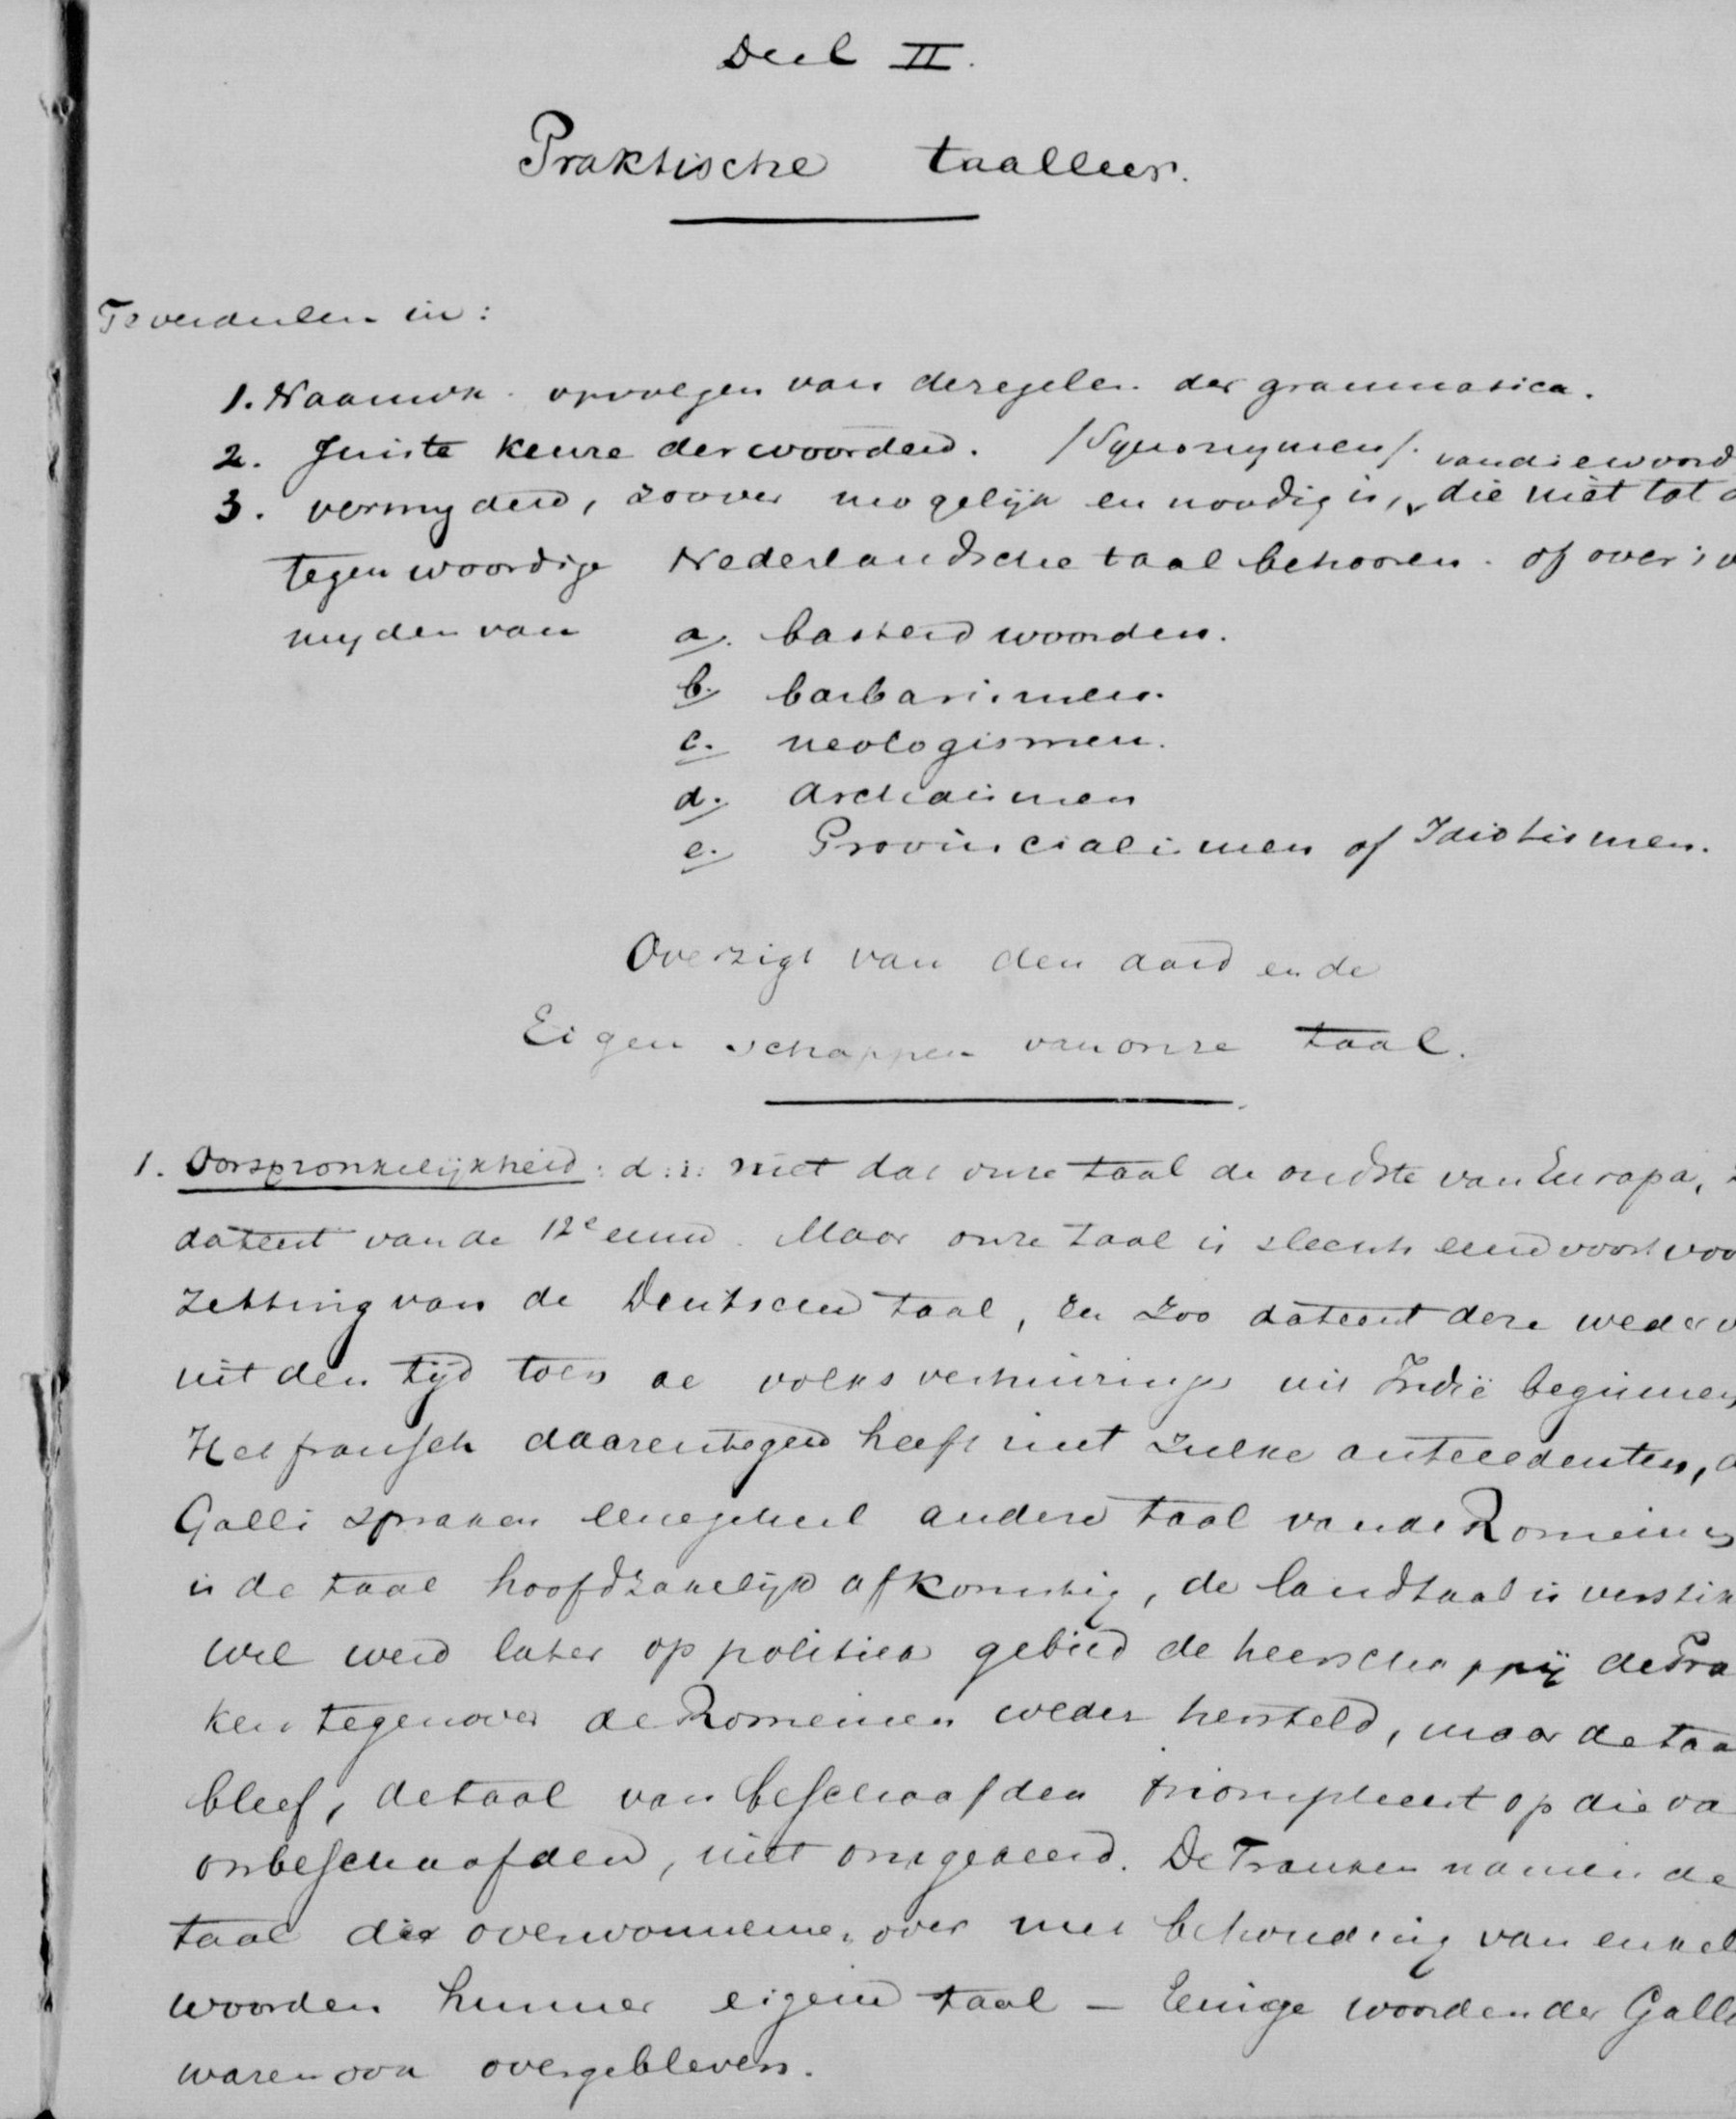 Deel II.
Praktische taalleer.
Te verdeelen in:
1. Naauwk. opvolgen van de regelen der grammatica.
2. Juiste keuze der woorden. /Synonymen/.
van die woord
3. vermyden, zoover mogelijk en noodig is, die niet tot d
tegenwoordige Nederlandsche taal behooren. of over 't v
myden van a. basterdwoorden.
b. barbarismen.
c. neologismen.
d. Archaismen
e. Provincialismen of Idiotismen.
Overzigt van den aard en de
Eigenschappen van onze taal.
1. Oorspronkelijkheid: d.i. niet dat onze taal de oudste van Europa,
dateert van de 12e eeuw. Maar onze taal is slechts eene voort
zetting van de Deutschen taal, en zoo dateert deze weder
uit den tijd toen de volksverhuizingen uit Indië beginnen
Het fransch daarentegen heeft niet zulke antecedenten, d
Galli spraken eene geheel andere taal van de Romeinen
is de taal hoofdzakelijk afkomstig, de landtaal is verstik
wel werd later op politiek gebied de heerschappij de Fra
ken tegenover de Romeinen weder hersteld, maar de taa
bleef, de taal van beschaafden triompheert op die va
onbeschaafden, niet omgekeerd. De Franken namen de
taal der overwonnenen over met behouding van enkel
woorden hunner eigene taal – Eenige woorden der Galli
waren ook overgebleven.